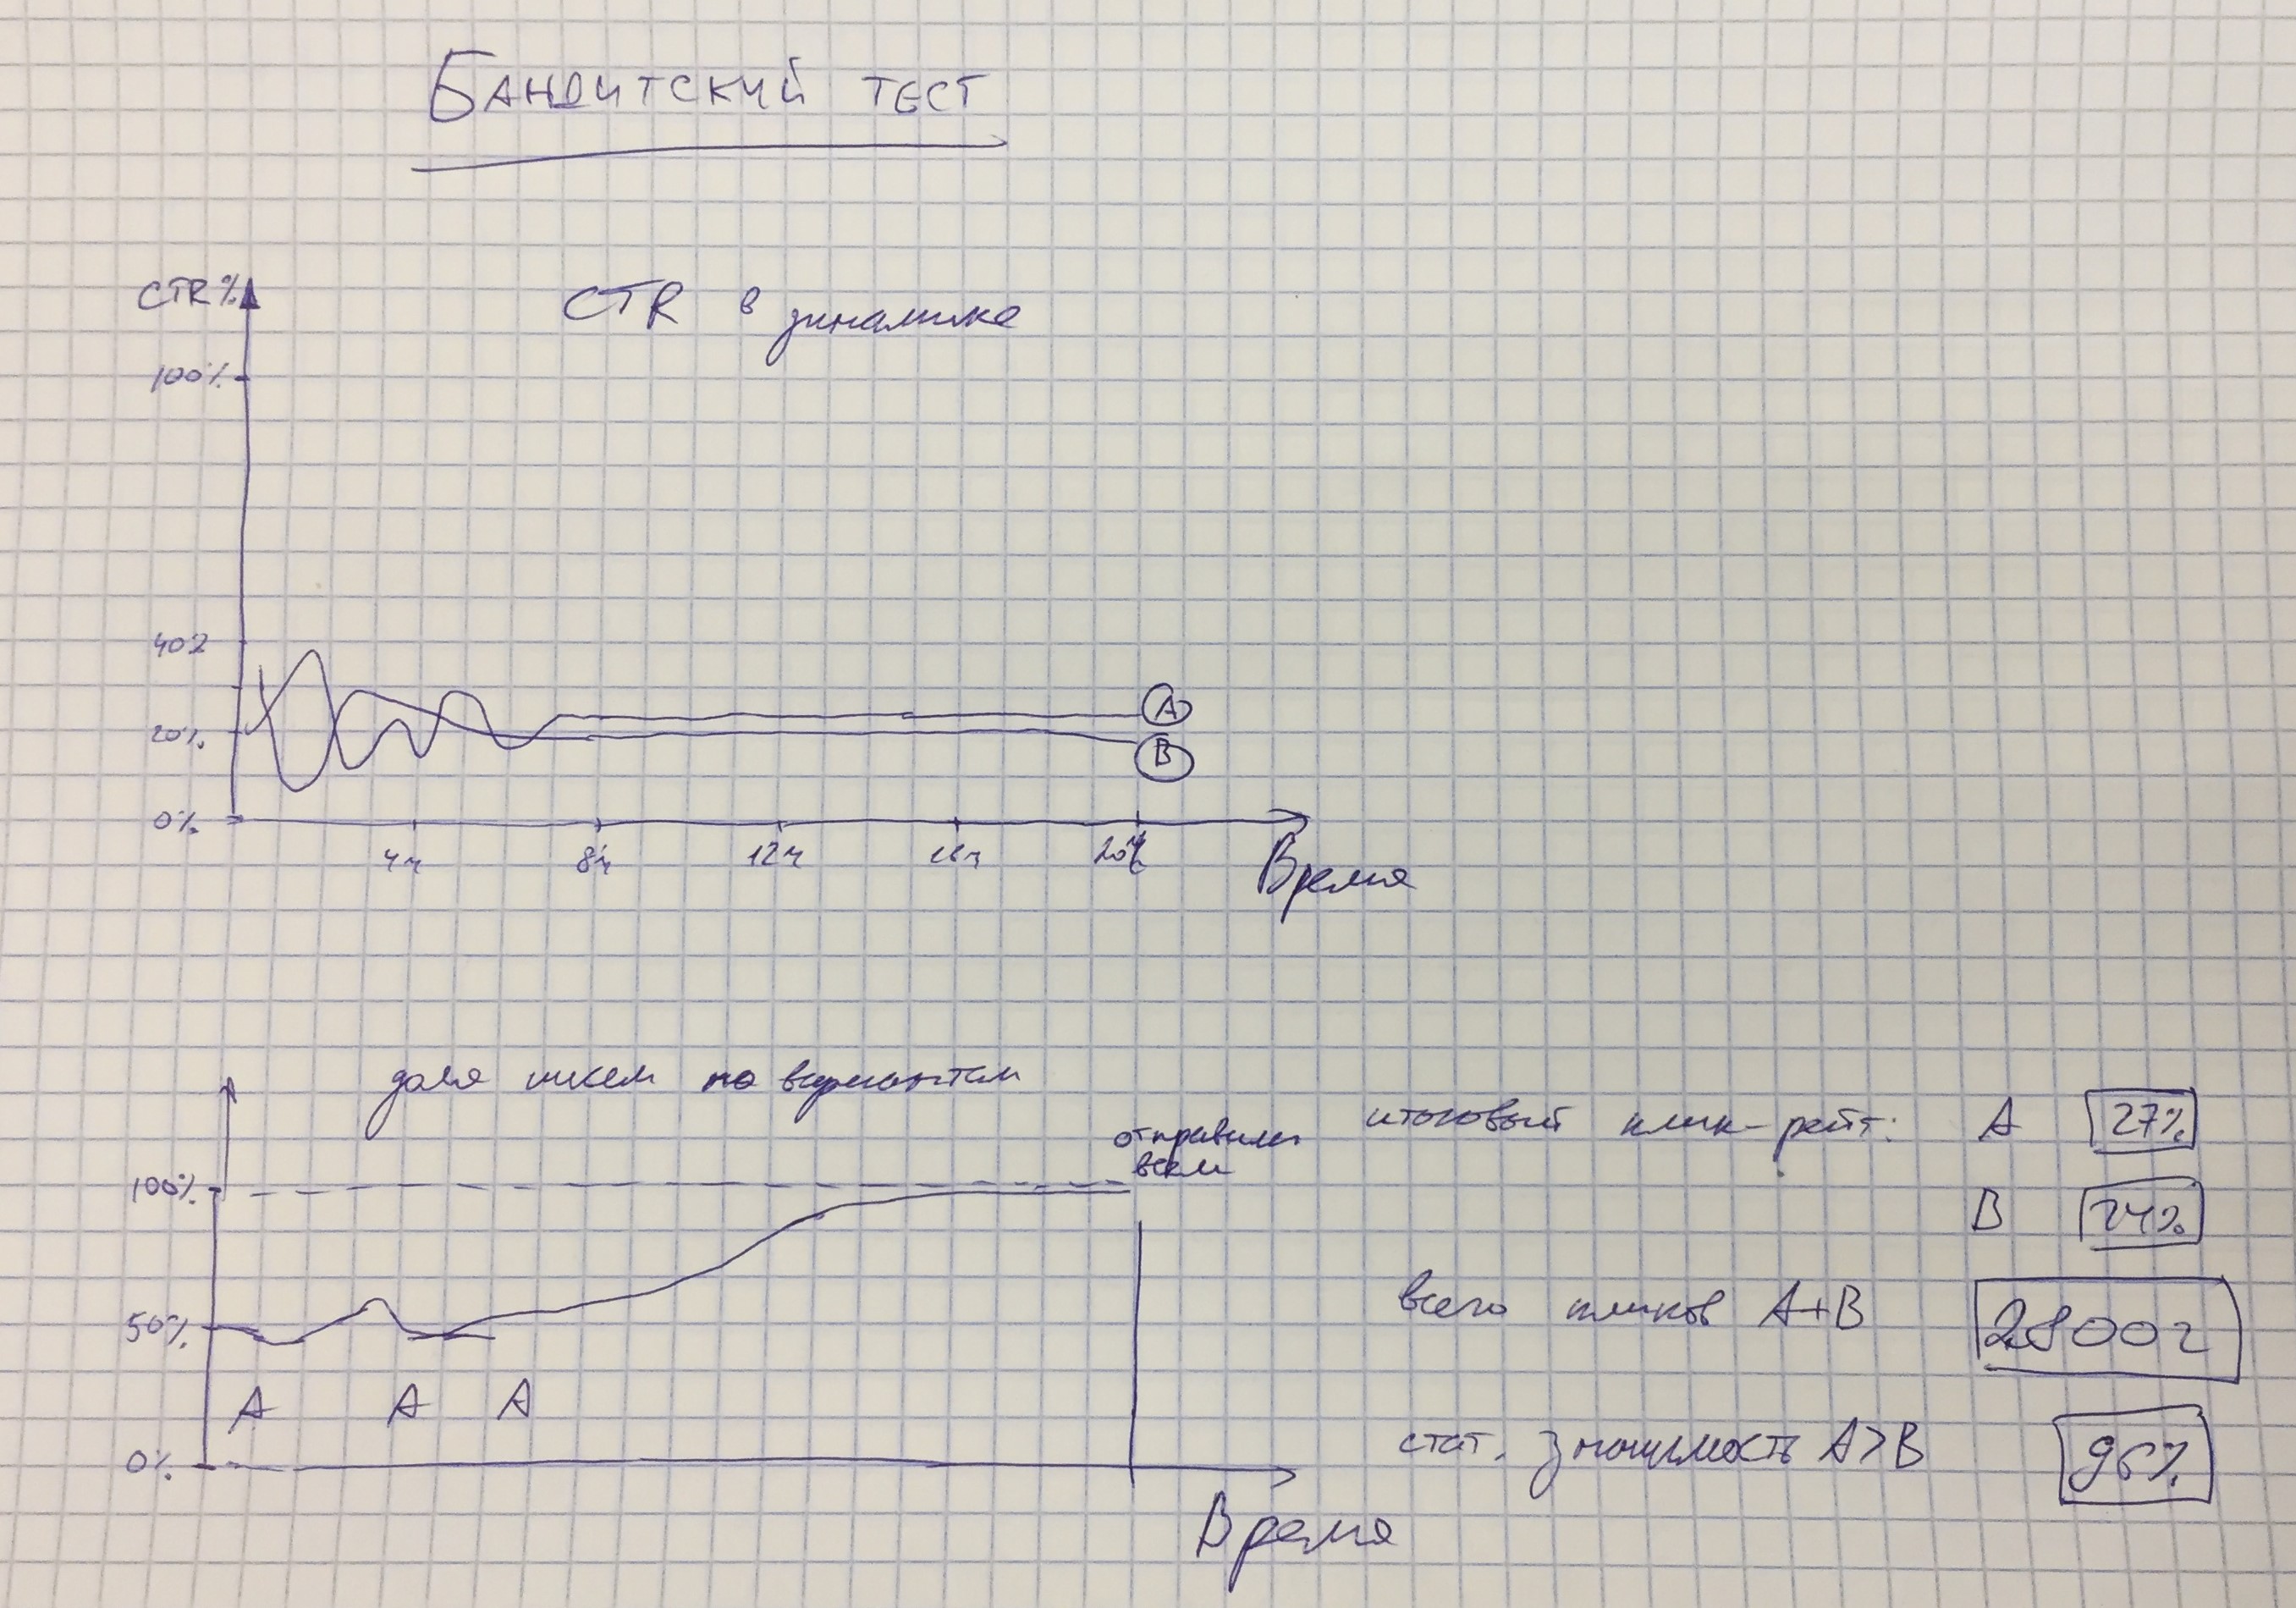 БАНДИТСКИЙ ТЕСТ
CTR в динамике
CTR %
100%
40%
20%.
0%.
A
B
4ч 8ч 12ч 16ч 20ч
Время
доля писем по вариантам
100%.
50%.
0%.
отправили
всем
A A A
Время
итоговый клик-рейт: A 27%
B 24%
всего кликов A+B 28002
стат. значимость A>B 96%